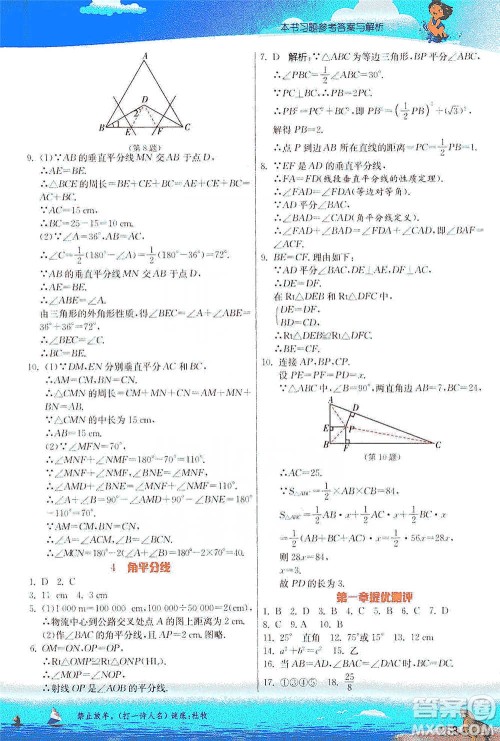 本书习题参考答案与解析
(第8题)
9. (1)∵AB的垂直平分线MN交AB于点D,
∴AE=BE.
∴△BCE的周长=BE+CE+BC=AE+CE+BC=AC+BC.
∵AC=15 cm,
∴BC=25-15=10(cm).
(2)∵∠A=36°,AB=AC,
∴∠C=1/2(180°-∠A)=1/2(180°-36°)=72°.
∵AB的垂直平分线MN交AB于点D,
∴AE=BE.
∴∠ABE=∠A.
由三角形的外角形性质,得∠BEC=∠A+∠ABE=
36°+36°=72°.
∴∠BEC=∠C.
∴BC=BE.
10. (1)∵DM,EN分别垂直平分AC和BC,
∴AM=CM,BN=CN.
∴△CMN的周长=CM+MN+CN=AM+MN+BN=AB.
∵△CMN的中长为15 cm,
∴AB=15(cm).
(2)∵∠MFN=70°,
∴∠MNF+∠NMF=180°-70°=110°.
∵∠AMD=∠NMF,∠BNE=∠MNF,
∴∠AMD+∠BNE=∠MNF+∠NMF=110°.
∴∠A+∠B=90°-∠AMD+90°-∠BNE=180°
-110°=70°.
∵AM=CM,BN=CN,
∴∠A=∠ACM,∠B=∠BCN.
∴∠MCN=180°-2(∠A+∠B)=180°-2×70°=40°.
4 角平分线
1. D 2. C
3. 11 cm 4. 3 cm
5. (1)1 000 m=100 000 cm,100 000÷50 000=2(cm);
∴物流中心到公路交叉处点A的图上距离为2 cm.
(2)作∠A的平分线,作图略.
6. OM=ON,OP=OP,
∴Rt△OMP≌Rt△ONP(HL).
∴∠MOP=∠NOP.
∴射线OP是∠AOB的平分线.
7. D 解析:∵△ABC为等边三角形,BP平分∠ABC,
∴∠PBC=1/2∠ABC=30°.
∵PC⊥BC,∴∠PCB=90°.
∴PB=2PC.
∵PB²=PC²+BC²,∴PB²=(1/2PB)²+(√3)².
解得PB=2.
∴点P到边AB所在直线的距离=PC=1/2PB=1.
8. ∵EF是AD的垂直平分线,
∴FA=FD(线段垂直平分线的性质定理).
∴∠FAD=∠FDA(等边对等角).
∵AD平分∠BAC,
∴∠BAD=∠CAD(角平分线定义).
∵∠B=∠FDA-∠BAD,∠FAC=∠FAD-∠CAD,
∴∠B=∠FAC.
9. BE=CF. 理由如下:
∵
∴DE=DF.
在Rt△DEB和Rt△DFC中,
DE=DF,
BD=CD,
∴Rt△DEB≌Rt△DFC.
∴BE=CF.
10. 连接AP,BP,CP.
设PE=PF=PD=x.
∵∠ABC=90°,两直角边AB=7,BC=24,
(第10题)
∴AC=25.
∵S△ABC=1/2×AB×CB=84,
S△ABC=1/2AB·x+1/2AC·x+1/2BC·x
=1/2(AB+BC+AC)·x=1/2·56x=28x,
则28x=84,
x=3.
故PD的长为3.
第一章提优测评
1. B 2. D 3. D 4. C 5. B 6. C 7. C 8. D
9. C 10. B
11. 25° 直角 12. 75°或15° 13. 4
14. a²+b²=c² 15. 2
16. ∵AD=AB ∵∠ACB=∠ACD=90°
17. ①③④⑤ 18. 25/8
禁止放牛。(打一诗人名)谜底:杜牧